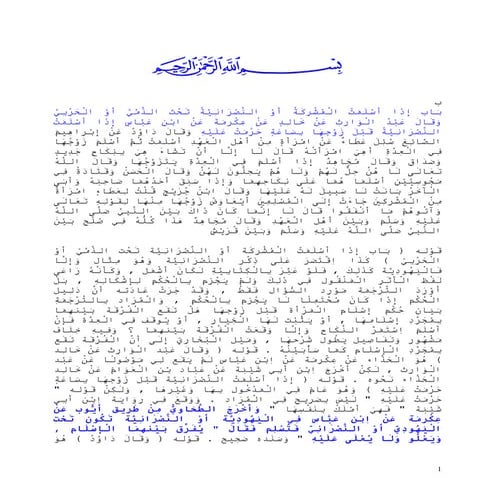 بِسْمِ اللَّهِ الرَّحْمَنِ الرَّحِيمِ
ب
باب إذا أسلمت المشركة أو النصرانية تحت الذمي أو الحربي
وقال عبد الوارث عن خالد عن عكرمة عن ابن عباس إذا أسلمت
النصرانية قبل زوجها بساعة حرمت عليه وقال داود عن إبراهيم
الصائغ سئل عطاء عن امرأة من أهل العهد أسلمت ثم أسلم زوجها
في العدة أهي امرأته قال لا إلا أن تشاء هي بنكاح جديد
وصداق وقال مجاهد إذا أسلم في العدة يتزوجها وقال الله
تعالى لا هن حل لهم ولا هم يحلون لهن وقال الحسن وقتادة في
مجوسيين أسلما هما على نكاحهما وإذا سبق أحدهما صاحبه وأبى
الآخر بانت لا سبيل له عليها وقال ابن جريج قلت لعطاء امرأة
من المشركين جاءت إلى المسلمين أيعاوض زوجها منها لقوله تعالى
وآتوهم ما أنفقوا قال لا إنما كان ذاك بين النبي صلى الله
عليه وسلم وبين أهل العهد وقال مجاهد هذا كله في صلح بين
النبي صلى الله عليه وسلم وبين قريش
قوله ( باب إذا أسلمت المشركة أو النصرانية تحت الذمي أو
الحربي ) كذا اقتصر على ذكر النصرانية وهو مثال وإلا
فاليهودية كذلك ، فلو عبر بالكتابية لكان أشمل ، وكأنه راعى
لفظ الأثر المنقول في ذلك ولم يجزم بالحكم لإشكاله ، بل
أورد الترجمة مورد السؤال فقط ، وقد جرت عادته أن دليل
الحكم إذا كان محتملا لا يجزم بالحكم ، والمراد بالترجمة
بيان حكم إسلام المرأة قبل زوجها هل تقع الفرقة بينهما
بمجرد إسلامها ، أو يثبت لها الخيار ، أو يوقف في العدة فإن
أسلم استمر النكاح وإلا وقعت الفرقة بينهما ؟ وفيه خلاف
مشهور وتفاصيل يطول شرحها ، وميل البخاري إلى أن الفرقة تقع
بمجرد الإسلام كما سأبينه . قوله ( وقال عبد الوارث عن خالد
) هو الحذاء عن عكرمة عن ابن عباس لم يقع لي موصولا عن عبد
الوارث ، لكن أخرج ابن أبي شيبة عن عباد بن العوام عن خالد
الحذاء نحوه . قوله ( إذا أسلمت النصرانية قبل زوجها بساعة
حرمت عليه ) وهو عام في المدخول بها وغيرها ، ولكن قوله "
حرمت عليه " ليس بصريح في المراد . ووقع في رواية ابن أبي
شيبة " فهي أملك بنفسها " وأخرج الطحاوي من طريق أيوب عن
عكرمة عن ابن عباس في اليهودية أو النصرانية تكون تحت
اليهودي أو النصراني فتسلم فقال " يفرق بينهما الإسلام ،
ويعلو ولا يعلى عليه " وسنده صحيح . قوله ( وقال داود ) هو
١